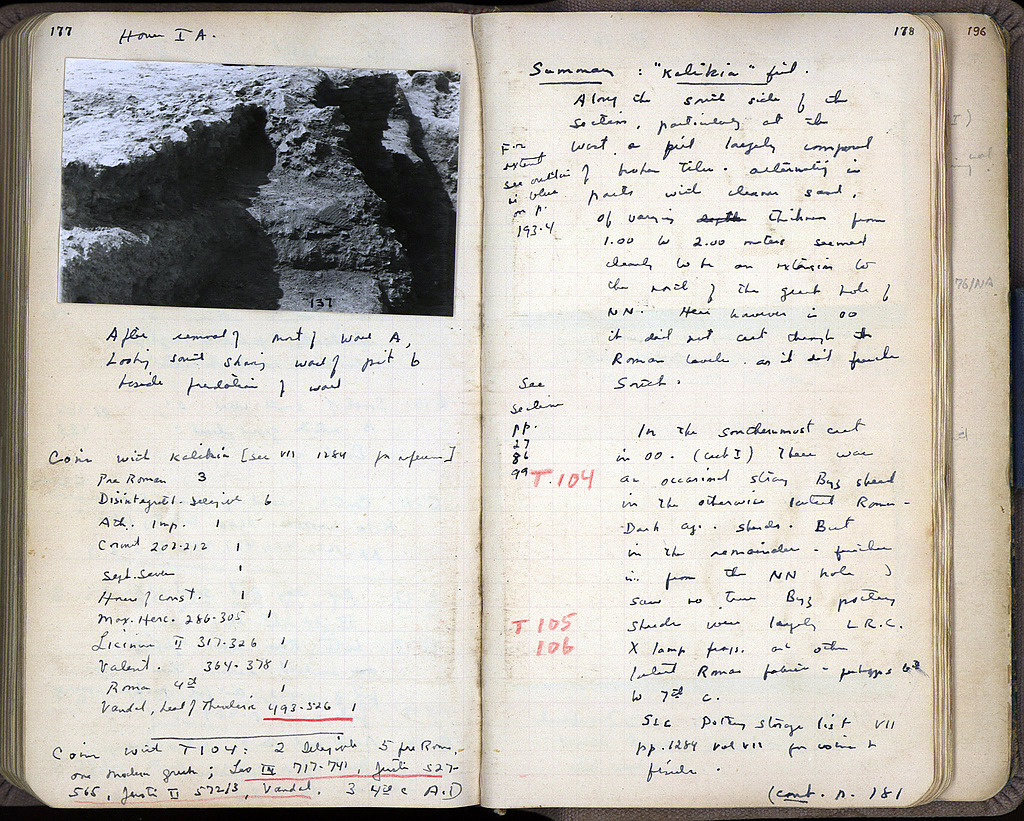 177
House I A.
137
After removal of most of wall A,
Looking south showing wall of pit b
beside foundation of wall
Coins with Kalikia [see VII 1284 for reference]
Pre Roman 3
Disintegrat. Illegible 6
Ath. Imp. 1
202-212 1
Sept. Sever 1
House of Const. 1
Max. Herc. 286-305 1
Licinius II 317-326 1
Valent. 364-378 1
Roma 4th 1
Vandal, 493-526 1
Coins with T104: 2 Illegible 5 pre Rom,
one modern greek; Leo III 717-741, Justi 527-
565, Justi II 572/3, Vandal, 3 4th c A.D
178
Summary : "Kalikia" fill.
Along the south side of the
Section, particularly at the
West a fill largely composed
of broken tiles alternating in
parts with cleaner sand,
of varying depth thickness from
1.00 to 2.00 meters seemed
clearly to be an extension to
the north of the great hole of
NN. Here however in OO
it did not cut through the
Roman levels as it did further
South.
For
extent
see outline
in blue
on p.
193-4
See
section
pp.
27
86
99
T.104
In the southernmost cut
in OO. (cut I) There was
an occasional stray Byz sherd
in the otherwise latest Roman -
Dark age sherds. But
in the remainder - further
from the NN hole I
saw no true Byz pottery
T 105
106
Sherds were largely L.R.C.
X lamp frags. and other
latest Roman fabrics - perhaps 6th
to 7th c.
See Pottery storage list VII
pp. 1284 vol VII for coins +
finds.
(cont. p. 181
196
I)
76/NA